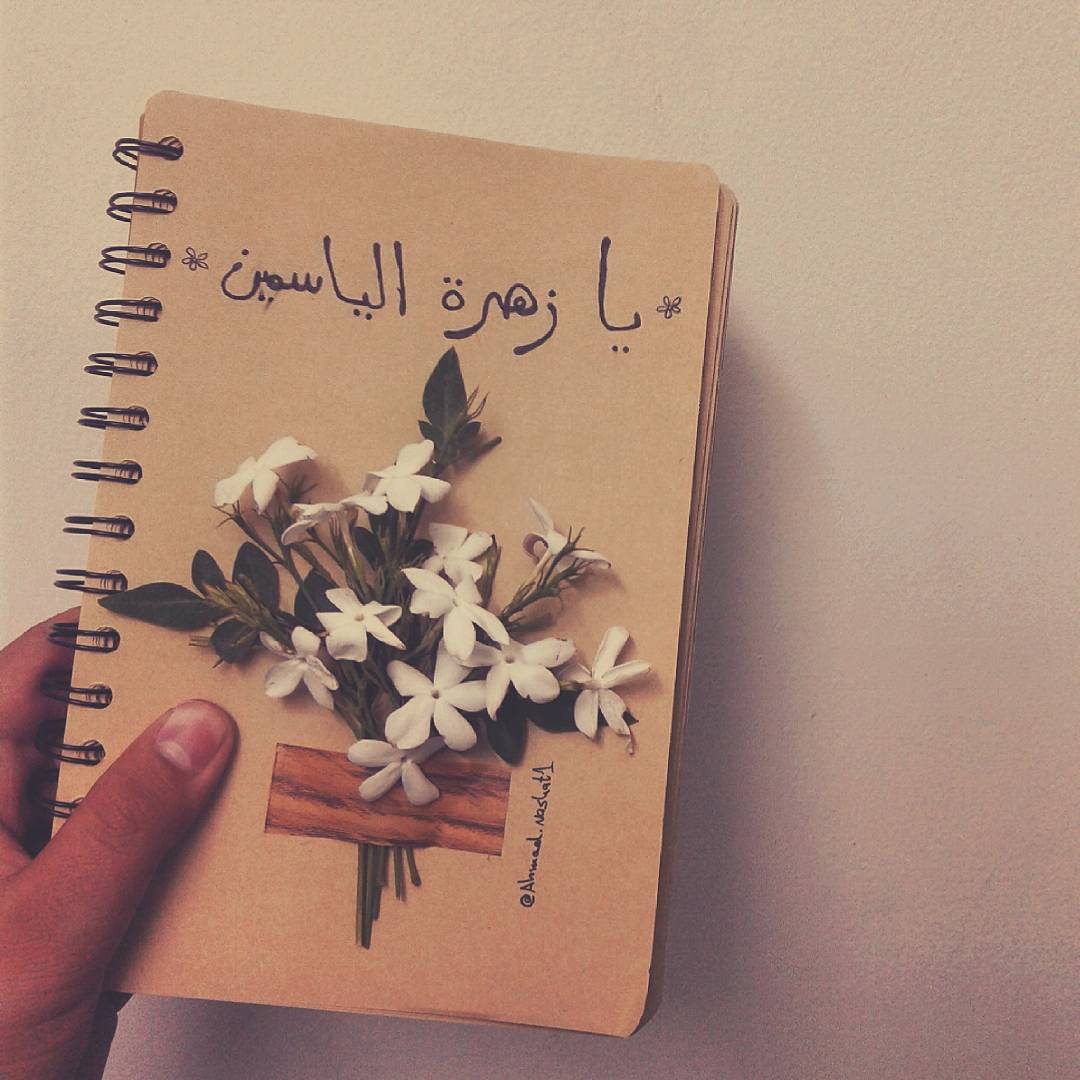 يا زهرة الياسمين
@Ahmad.Nashat1